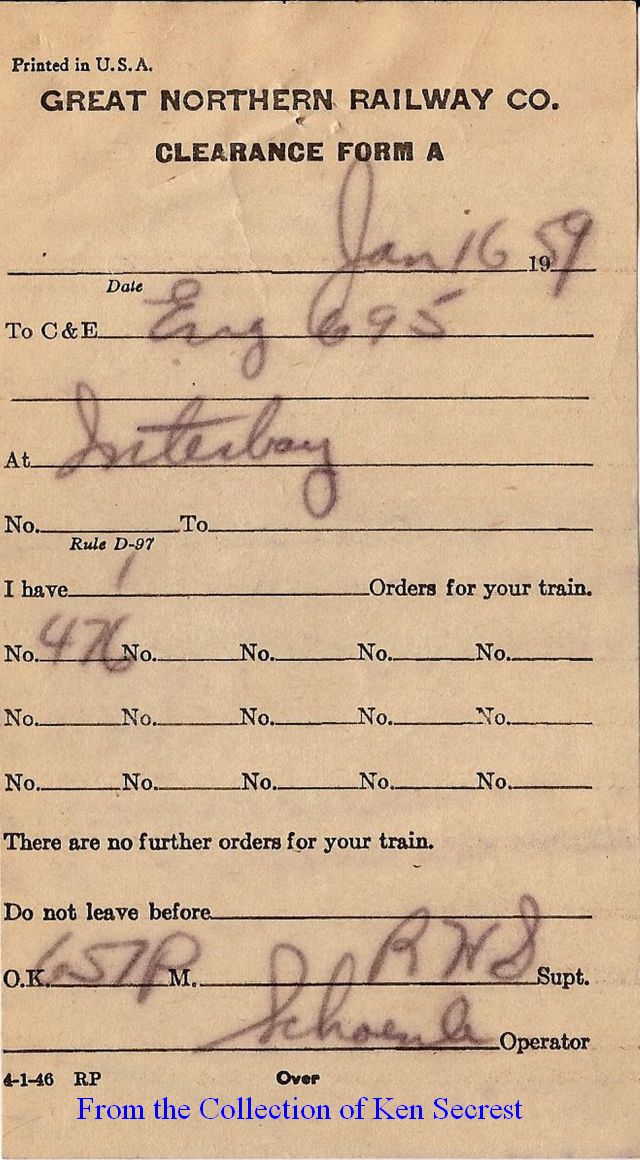 Printed in U.S.A.
GREAT NORTHERN RAILWAY CO.
CLEARANCE FORM A
Jan 16 1959
Date
To C & E Eng 695
At Interbay
No. To
Rule D-97
I have 1 Orders for your train.
No. 476 No. No. No. No.
No. No. No. No. No.
No. No. No. No. No.
There are no further orders for your train.
Do not leave before
O.K. 657P M. RWS Supt.
Operator
4-1-46 RP Over
From the Collection of Ken Secrest